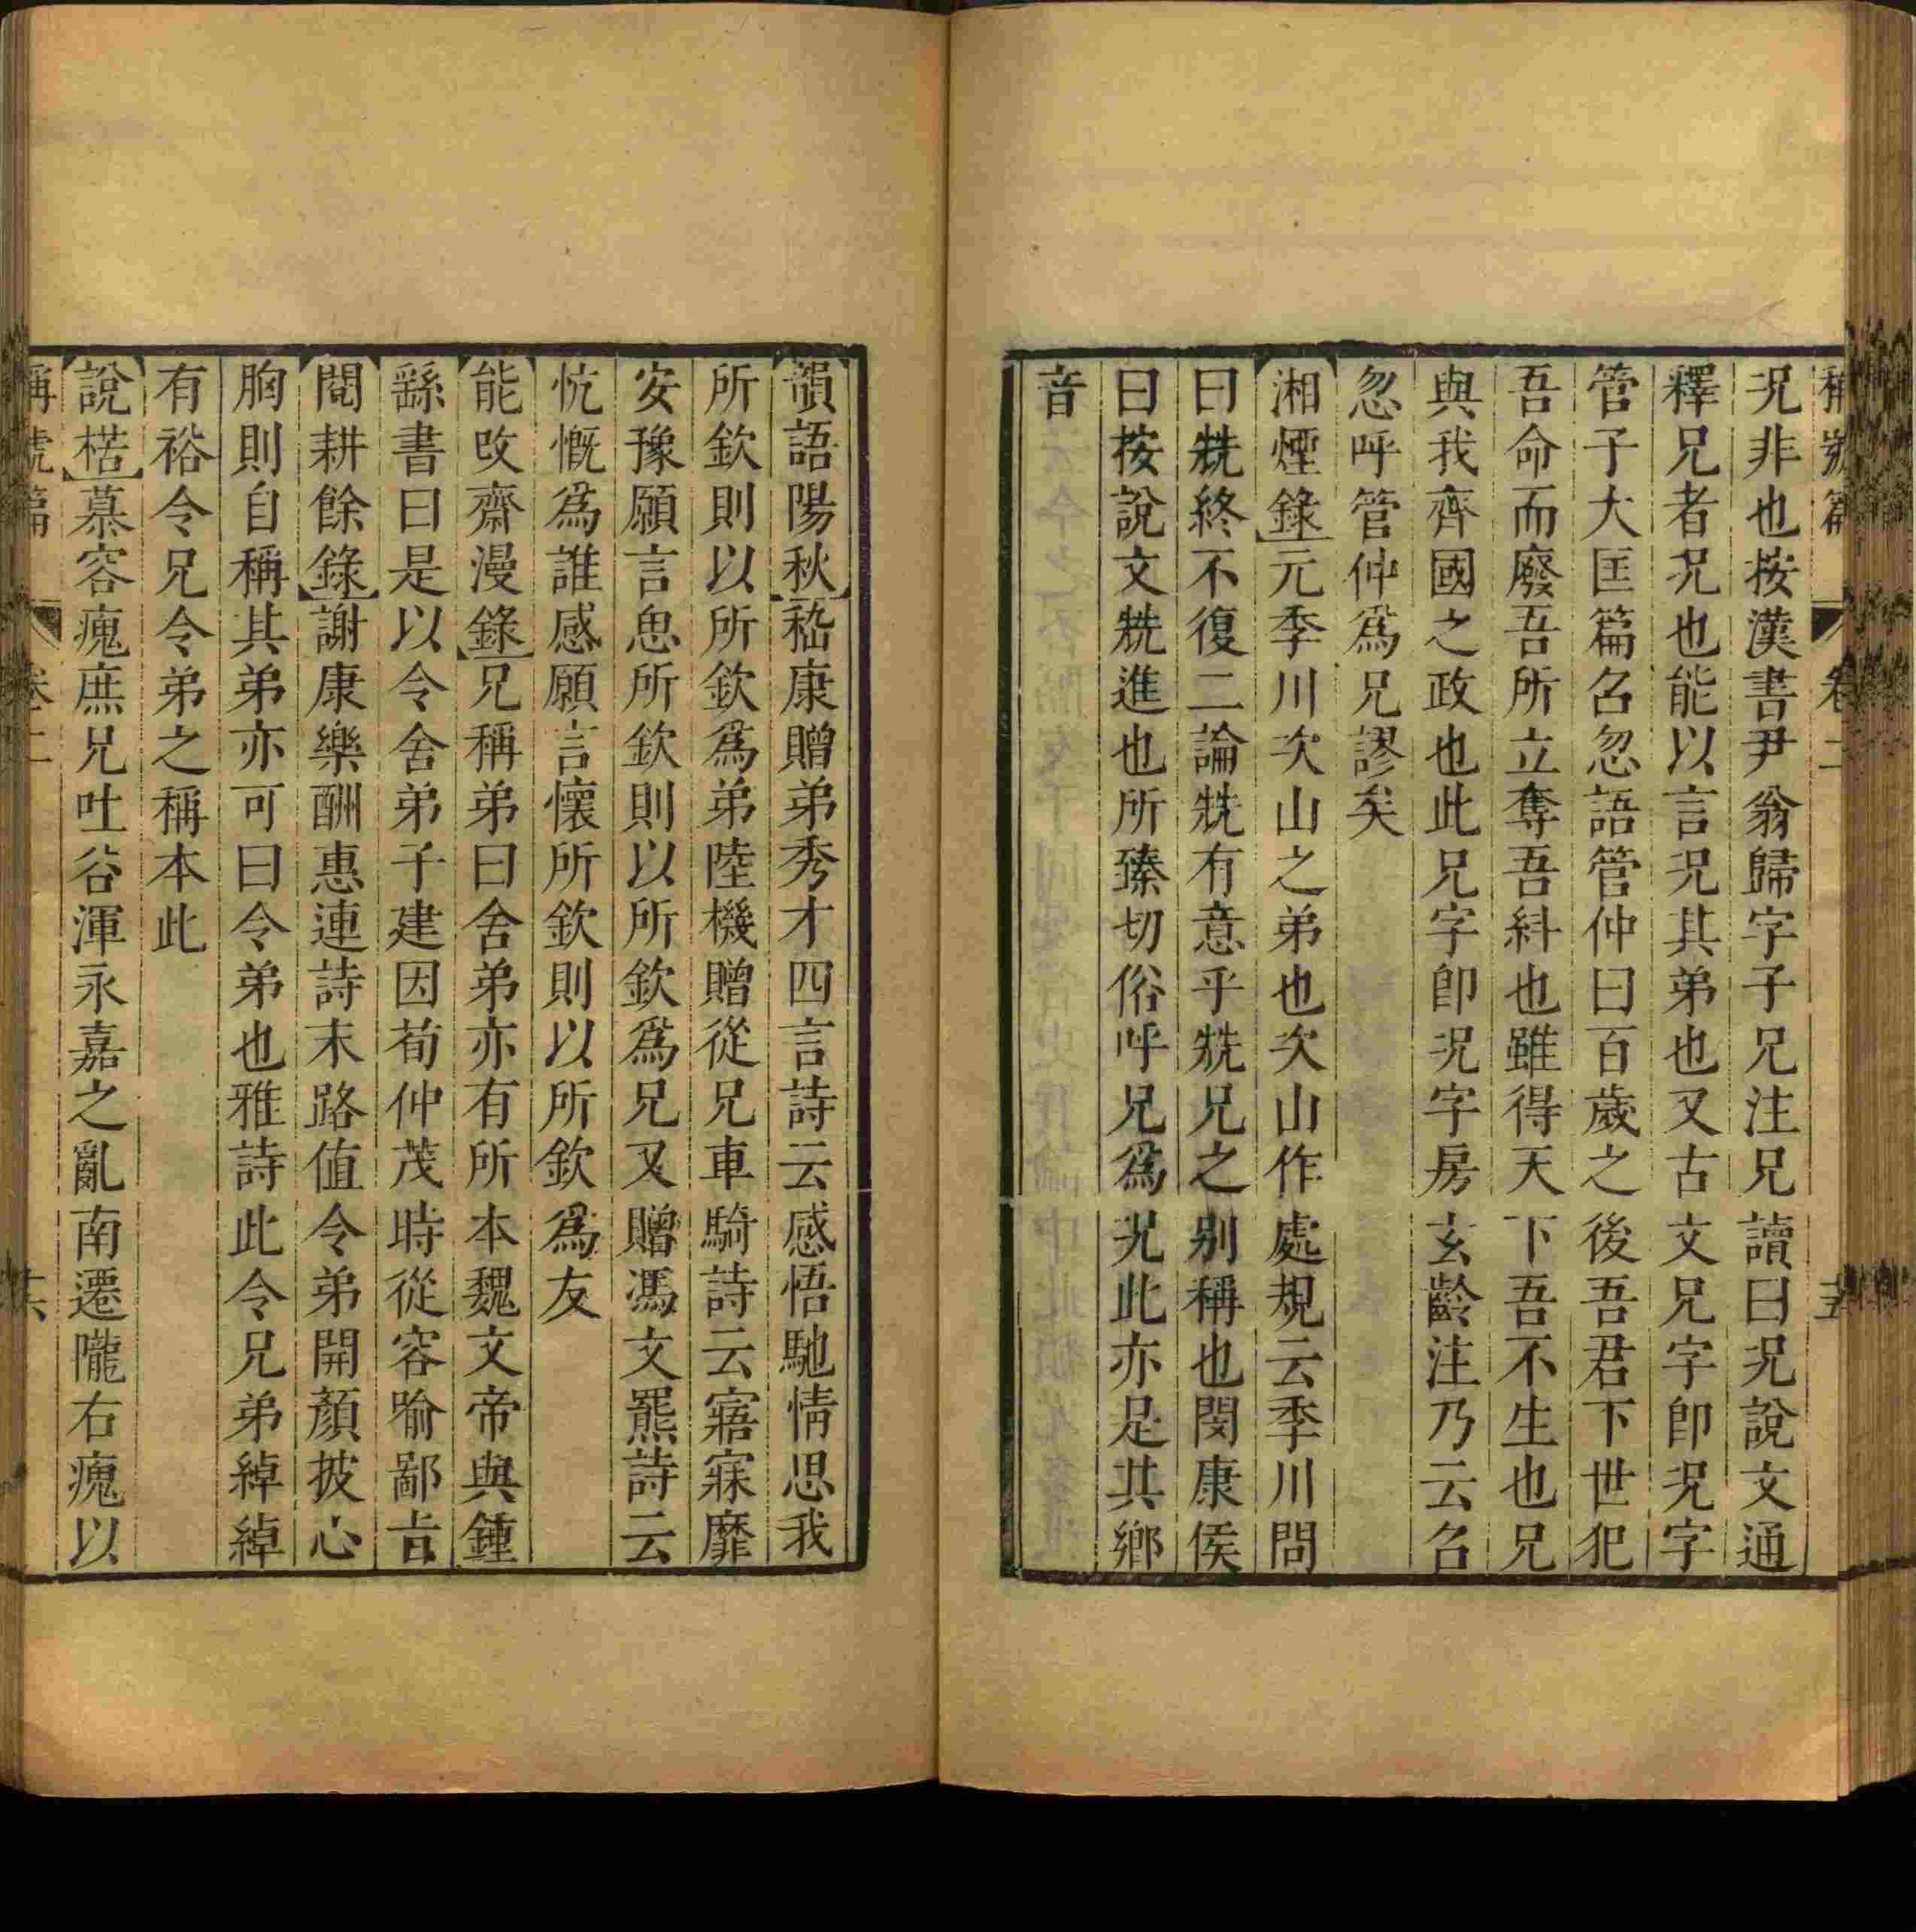 稱號篇 卷二 五
况非也按漢書尹翁歸字子兄注兄讀曰况說文通
釋兄者况也能以言况其弟也又古文兄字卽况字
管子大匡篇名忽語管仲曰百歲之後吾君下世犯
吾命而廢吾所立奪吾糾也雖得天下吾不生也兄
與我齊國之政也此兄字卽况字房玄齡注乃云名
忽呼管仲爲兄謬矣
湘煙錄元季川次山之弟也次山作處規云季川問
曰兟終不復二論兟有意乎兟兄之别稱也閔康侯
曰按說文兟進也所臻切俗呼兄爲兟此亦足其鄉
音
韻語陽秋嵇康贈弟秀才四言詩云感悟馳情思我
所欽則以所欽爲弟陸機贈從兄車騎詩云寤寐靡
安豫願言思所欽則以所欽爲兄又贈馮文羆詩云
慷慨爲誰感願言懷所欽則以所欽爲友
能攺齋漫錄兄稱弟曰舍弟亦有所本魏文帝與鍾
繇書曰是以令舍弟子建因荀仲茂時從容喻鄙旨
閱耕餘錄謝康樂酬惠連詩末路值令弟開顏披心
胸則自稱其弟亦可曰令弟也雅詩此令兄弟綽綽
有裕令兄令弟之稱本此
說楛慕容瘣庶兄吐谷渾永嘉之亂南遷隴右瘣以
稱號篇 卷二 六